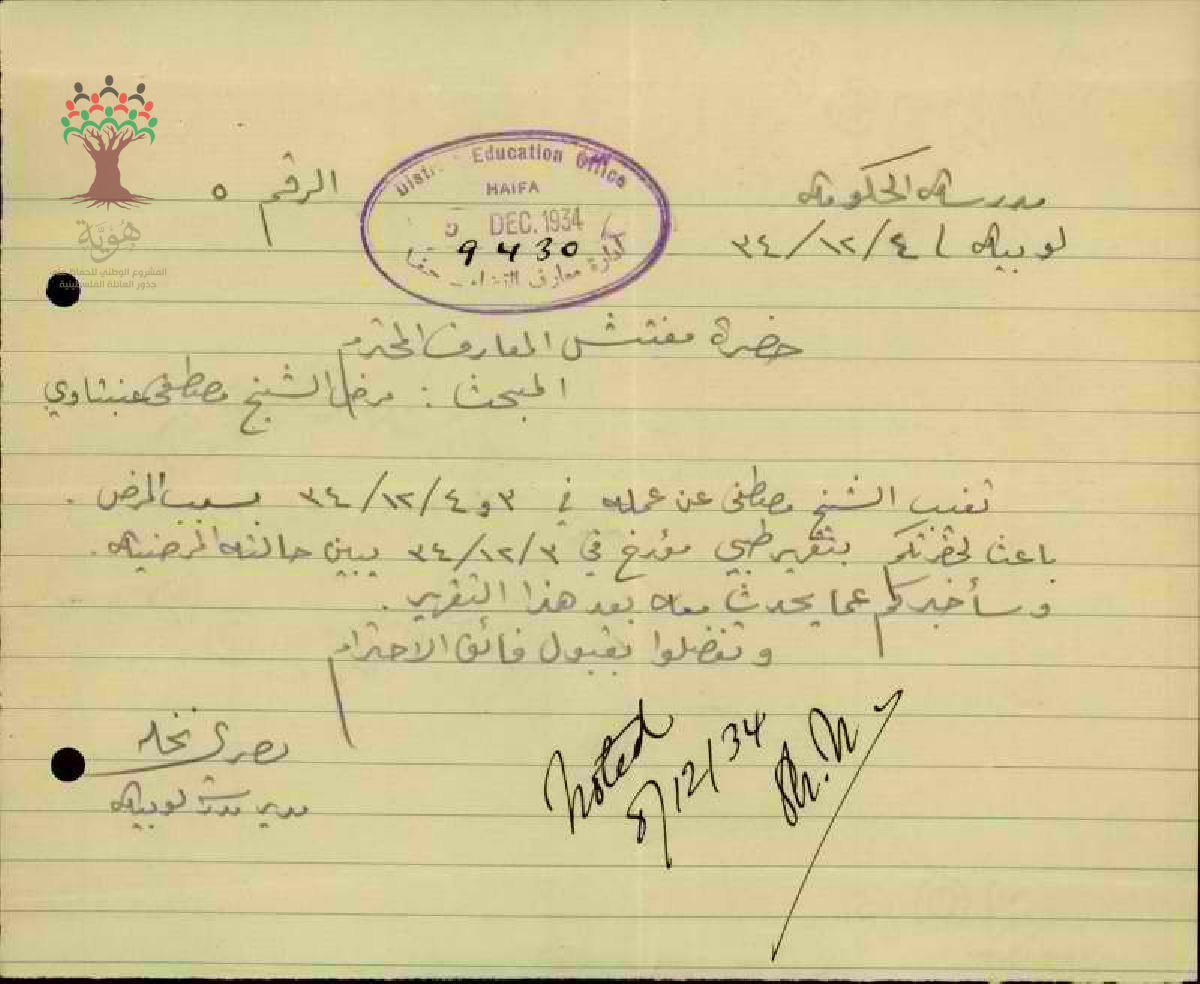 مدرسة الحكومة
الرقم ٥
لوبيه / ٤/١٢/٣٤
District Education Office
HAIFA
5 DEC. 1934
9430
ادارة معارف اللواء - حيفا
هُوِيَّة
المشروع الوطني للحفاظ على
جذور العائلة الفلسطينية
حضرة مفتش المعارف المحترم
المبحث : مرض الشيخ مصطفى عنبتاوي
تغيب الشيخ مصطفى عن عمله في ٣ و ٤/١٢/٣٤ بسبب المرض .
باعث لحضرتكم بتقرير طبي مؤرخ في ٣/١٢/٣٤ يبين حالته المرضية .
وسأخبركم عما يحدث معه بعد هذا التقرير .
وتفضلوا بقبول فائق الاحترام
نصري نخله
مدير مدرسة لوبيه
Noted
8/12/34
Sh. N